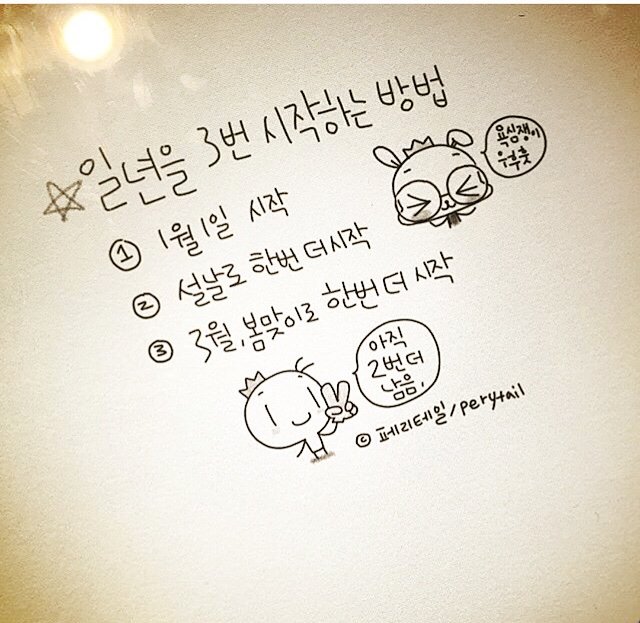 ☆일년을 3번 시작하는 방법
욕심쟁이
우후훗
① 1월 1일 시작
② 설날로 한번 더 시작
③ 3월, 봄맞이로 한번 더 시작
아직
2번 더
남음.
© 페리테일/perytail